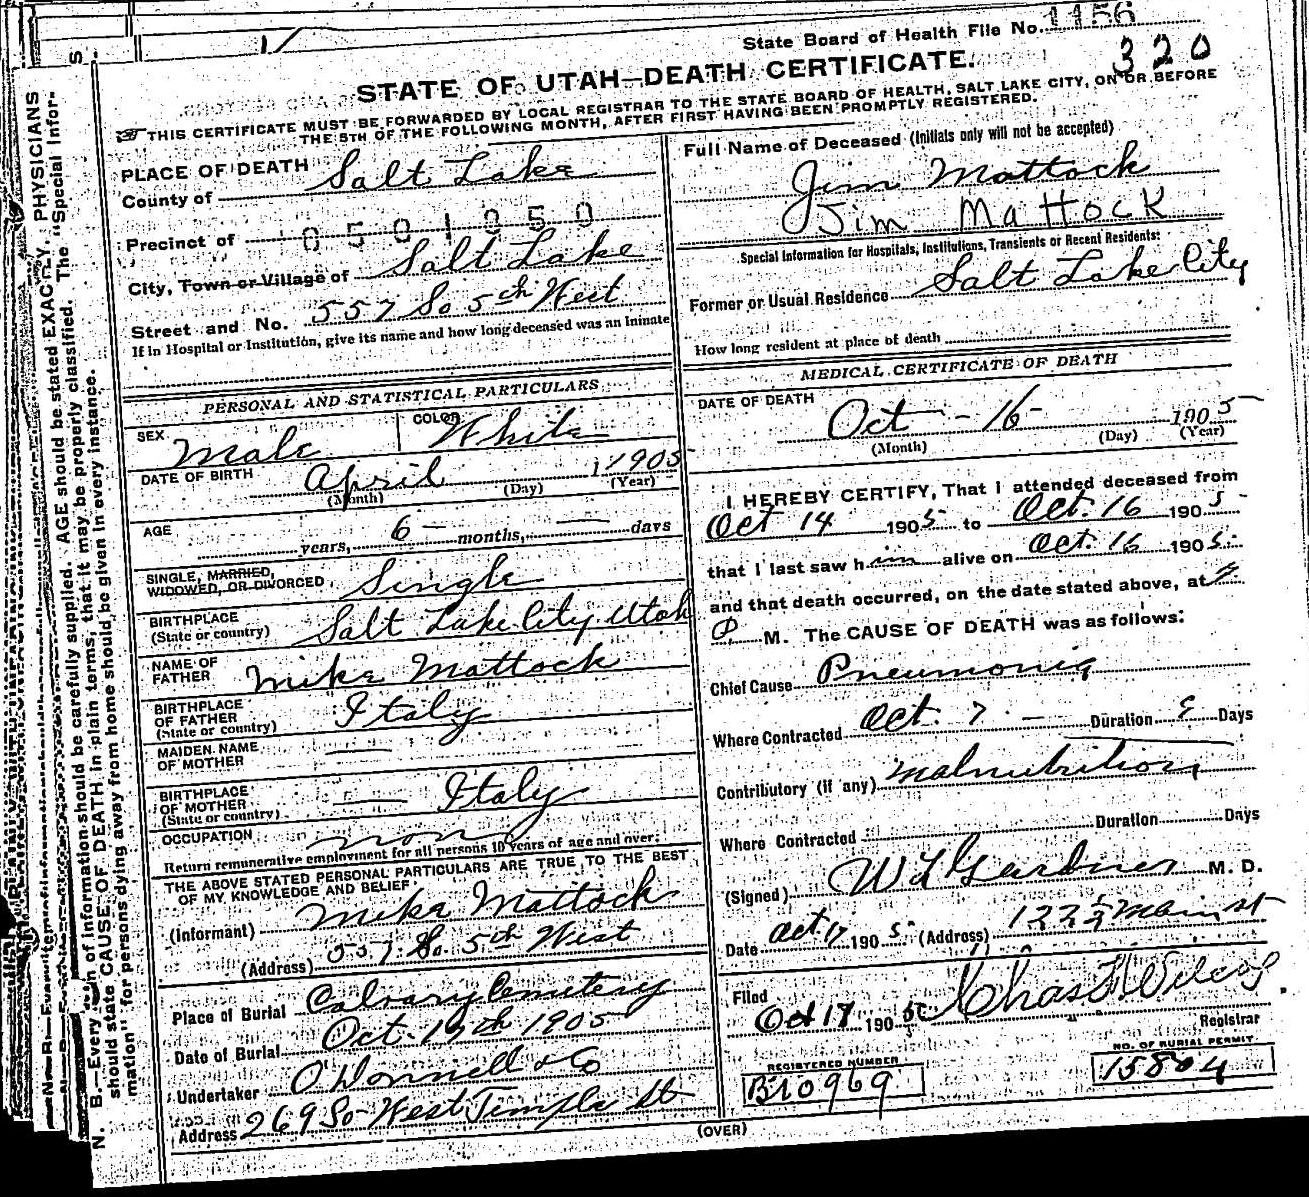 State Board of Health File No. 1156
320
STATE OF UTAH—DEATH CERTIFICATE.
THIS CERTIFICATE MUST BE FORWARDED BY LOCAL REGISTRAR TO THE STATE BOARD OF HEALTH, SALT LAKE CITY, ON OR BEFORE
THE 5TH OF THE FOLLOWING MONTH, AFTER FIRST HAVING BEEN PROMPTLY REGISTERED.
PLACE OF DEATH
County of Salt Lake
Precinct of 0501050
City, Town or Village of Salt Lake
Street and No. 557 So 5th West
If in Hospital or Institution, give its name and how long deceased was an Inmate
PERSONAL AND STATISTICAL PARTICULARS
SEX Male COLOR White
DATE OF BIRTH April 1905
(Month) (Day) (Year)
AGE years, 6 — months, — days
SINGLE, MARRIED,
WIDOWED, OR DIVORCED Single
BIRTHPLACE
(State or country) Salt Lake City Utah
NAME OF
FATHER Mike Mattock
BIRTHPLACE
OF FATHER
(State or country) Italy
MAIDEN NAME
OF MOTHER —
BIRTHPLACE
OF MOTHER
(State or country) — Italy
OCCUPATION non
Return remunerative employment for all persons 10 years of age and over.
THE ABOVE STATED PERSONAL PARTICULARS ARE TRUE TO THE BEST
OF MY KNOWLEDGE AND BELIEF
(Informant) Mike Mattock
(Address) 557 So 5th West
Place of Burial Calvary Cemetery
Date of Burial Oct 1905
Undertaker O'Donnell & Co
Address 269 So West Temple St
Full Name of Deceased (Initials only will not be accepted)
Jim Mattock
Jim Mattock
Special Information for Hospitals, Institutions, Transients or Recent Residents:
Former or Usual Residence Salt Lake City
How long resident at place of death
MEDICAL CERTIFICATE OF DEATH
DATE OF DEATH
Oct - 16 - 1905
(Month) (Day) (Year)
I HEREBY CERTIFY, That I attended deceased from
Oct 14 1905 to Oct. 16 1905
that I last saw him alive on Oct. 16 1905
and that death occurred, on the date stated above, at
P M. The CAUSE OF DEATH was as follows:
Chief Cause Pneumonia
Where Contracted Oct. 7 — Duration 9 Days
Contributory (if any) Malnutrition
Where Contracted Duration Days
(Signed) W L Gardner M. D.
Date Oct 17 1905 (Address) Main st
Filed Oct 17 1905 Chas F Wilcox
Registrar
REGISTERED NUMBER
B10969
NO. OF BURIAL PERMIT
15804
(OVER)
N. B.—Every item of Information should be carefully supplied. AGE should be stated EXACTLY. PHYSICIANS
should state CAUSE OF DEATH in plain terms, that it may be properly classified. The "Special Infor-
mation" for persons dying away from home should be given in every instance.